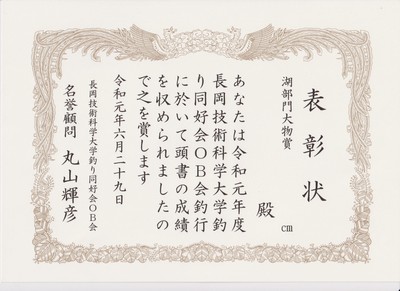 表彰状
湖部門大物賞
cm
殿
あなたは令和元年度
長岡技術科学大学釣
り同好会OB会釣行
に於いて頭書の成績
を収められましたの
で之を賞します
令和元年六月二十九日
長岡技術科学大学釣り同好会OB会
名誉顧問 丸山輝彦